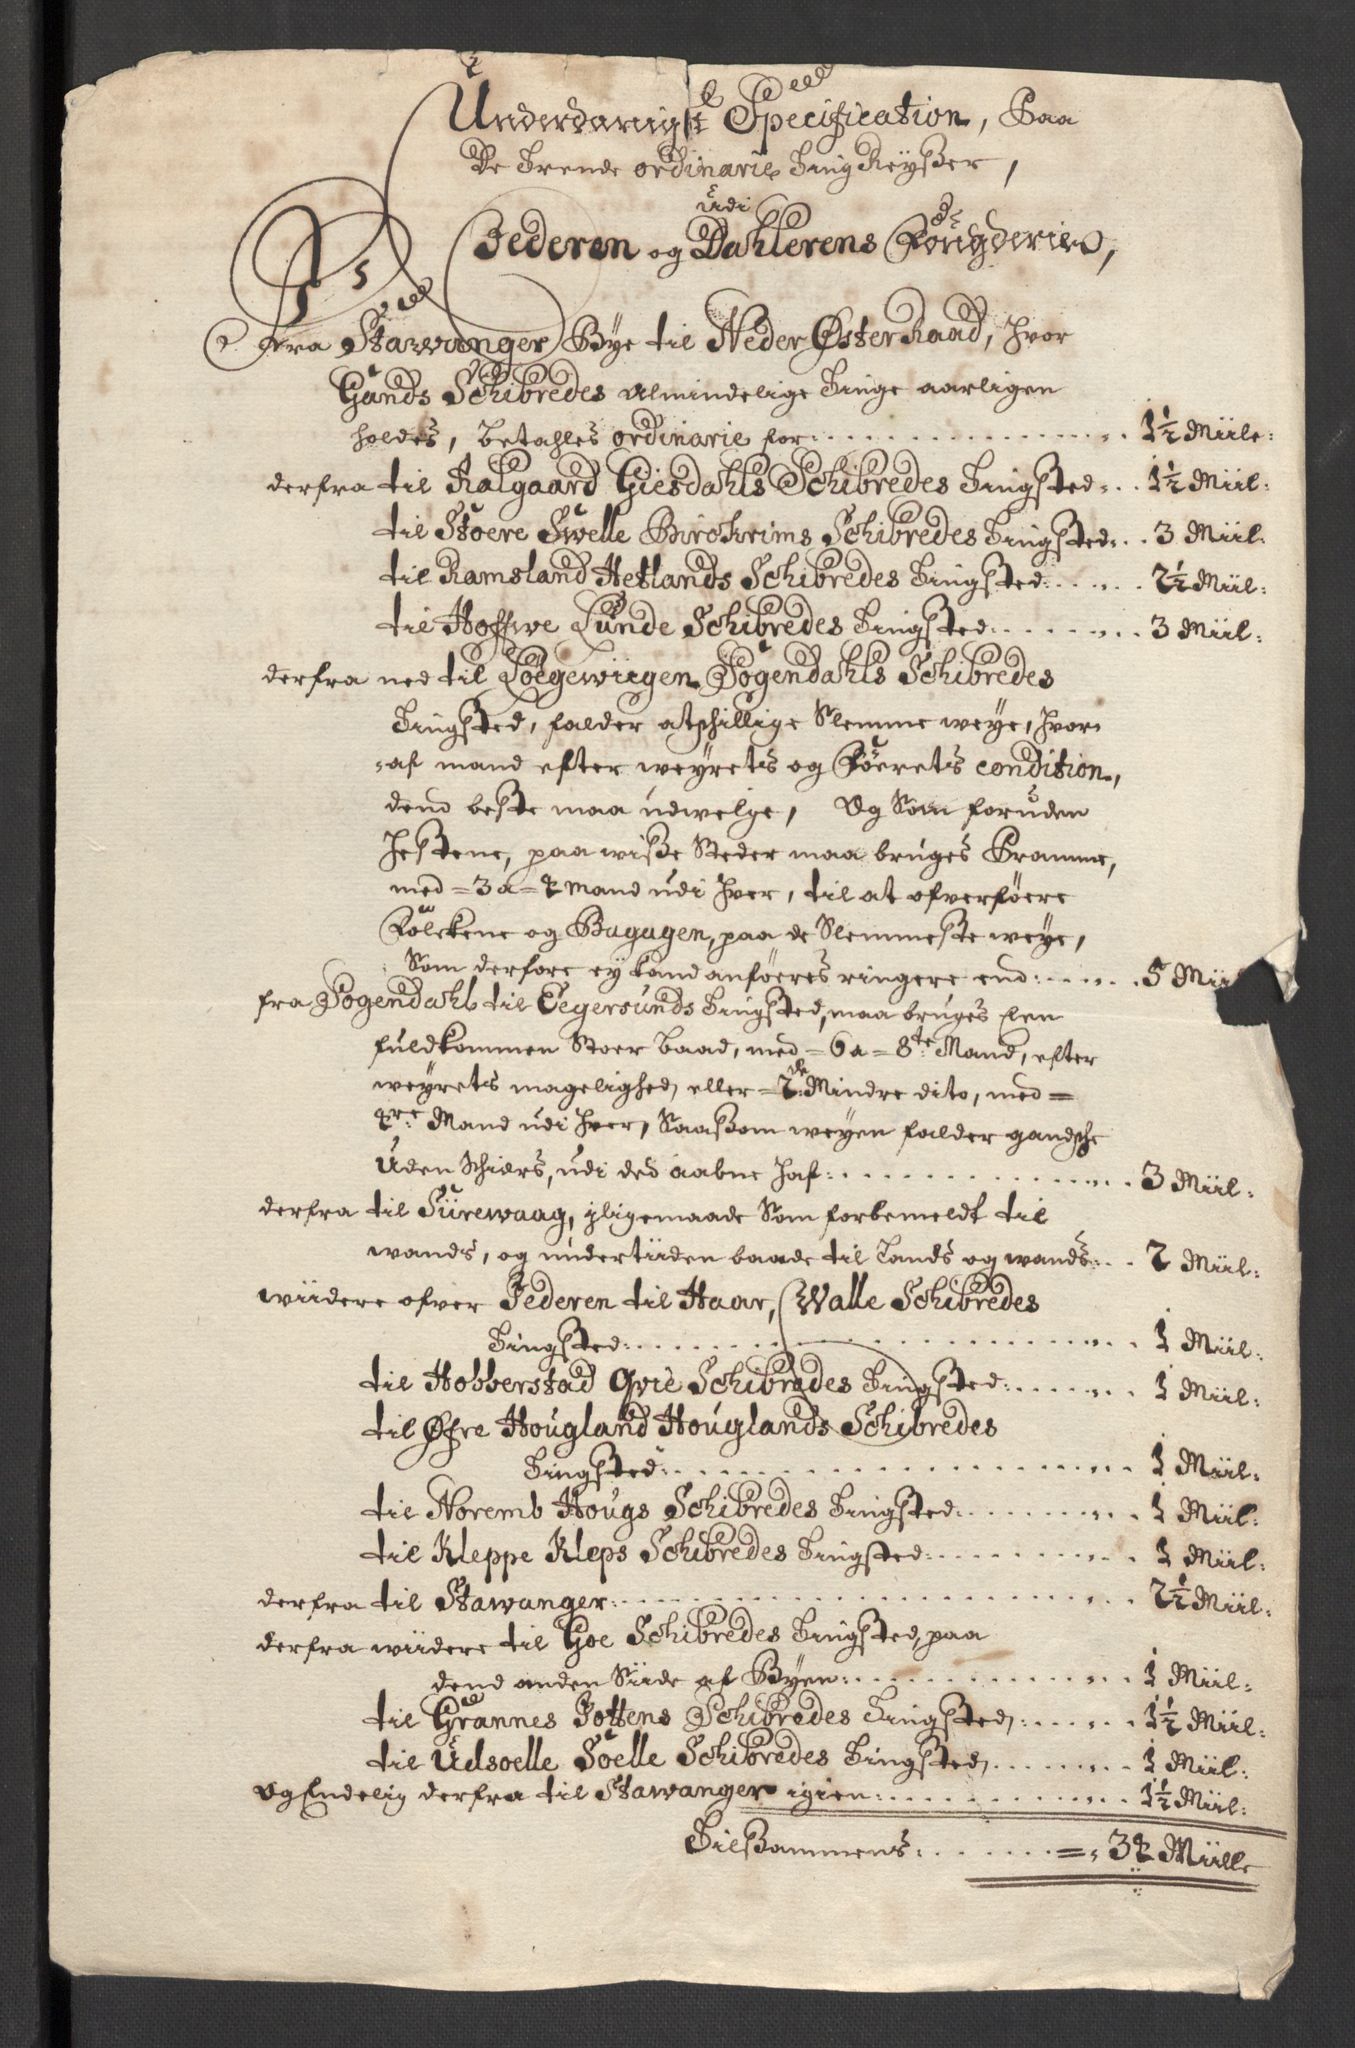 Underdanigst Specification, Paa
De Trende ordinarie Ting Reyßer,
udi
Jederen og Dahlerens Fougderier,
Fra Stawanger Bye til Neder Øster Raad, hvor
Gands Schibredes Almindelige Tinge aarligen
holdes, betahles ordinarie for . . . 1½ Miile:
derfra til Aalgaard Giesdahls Schibredes Tingsted: . . 1½ Miil:
til Stoere Swelle Birchrims Schibredes Tingsted: . . 3 Miil:
til Ramsland Hetlands Schibredes Tingsted: . . . 2½ Miil:
til Hoffwe Lunde Schibredes Tingsted: . . . 3 Miil:
derfra ned til Soegewiigen Sogendahls Schibredes
Tingsted, falder atschillige Slemme weye, hvor-
-af mand efter weyrets og Föerets condition,
dend beste maa udwelge, Og Som foruden
Hestene, paa wiße Steder maa bruges Pramme,
med = 3 a = 4 Mand udi hver, til at ofverföere
Folckene og Bagagen, paa de Slemmeste weye,
Som derfore ey kand anföeres ringere end: . . . 5 Mii
fra Sogendahl til Eegersunds Tingsted, maa bruges Een
fuldkommen Stoer baad, med = 6 a = 8te Mand, efter
weyrets magelighed, eller = 2de Mindre dito, med =
4re Mand udi hver, Saaßom weyen falder gandsche
uden Schiærs, udi ded aabne haf: . . . 3 Miil:
derfra til Sürewaag, jligemaade Som forbemeldt til
wands, og undertiiden baade til Lands og wands: . . 2 Miil:
wiidere ofver Jederen til Haar, Walle Schibredes
Tingsted: . . . 1 Miil:
til Hobberstad Qvie Schibredes Tingsted: . . . 1 Miil:
til Øfre Hougland Houglands Schibredes
Tingsted: . . . 1 Miil:
til Noremb Hougs Schibredes Tingsted: . . . 1 Miil:
til Kleppe Kleps Schibredes Tingsted: . . . 1 Miil:
derfra til Stawanger: . . . 2½ Miil:
derfra wiidere til Goe Schibredes Tingsted, paa
dend anden Siide af Byen: . . . 1 Miil:
til Grannes Jottens Schibredes Tingsted: . . . 1½ Miil:
til Udsoelle Soelle Schibredes Tingsted . . . 1 Miil:
Og Endelig derfra til Stawanger igien: . . . 1½ Miil:
Tilßammens: . . . =, 34 Miille